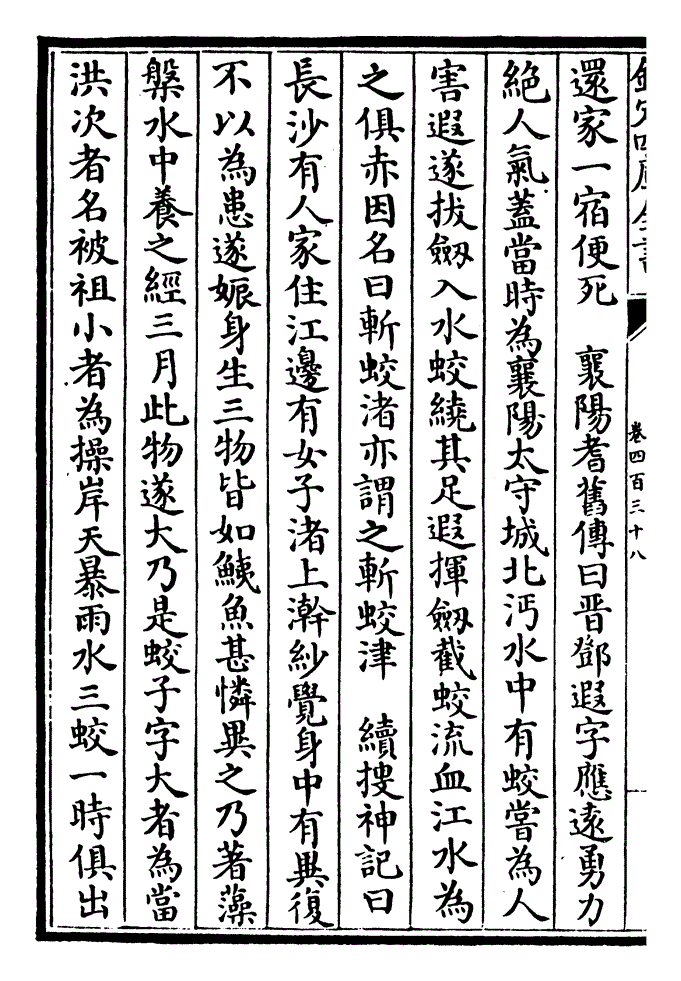 欽定四庫全書
卷四百三十八
還家一宿便死　襄陽耆舊傳曰晉鄧遐字應遠勇力
絶人氣蓋當時為襄陽太守城北沔水中有蛟嘗為人
害遐遂拔劔入水蛟繞其足遐揮劔截蛟流血江水為
之俱赤因名曰斬蛟渚亦謂之斬蛟津　續搜神記曰
長沙有人家住江邊有女子渚上澣紗覺身中有異復
不以為患遂娠身生三物皆如鮧魚甚憐異之乃著藻
槃水中養之經三月此物遂大乃是蛟子字大者為當
洪次者名被祖小者為操岸天暴雨水三蛟一時俱出